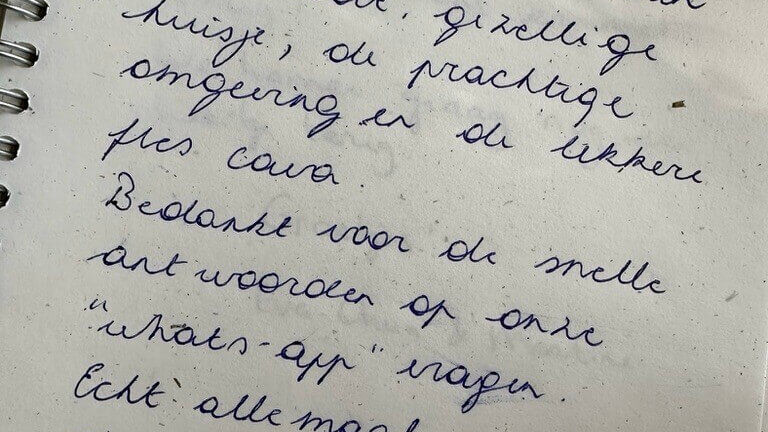 gezellige
huisje, de prachtige
omgeving en de lekkere
fles cava.
Bedankt voor de snelle
antwoorden op onze
"whats-app" vragen.
Echt allemaal